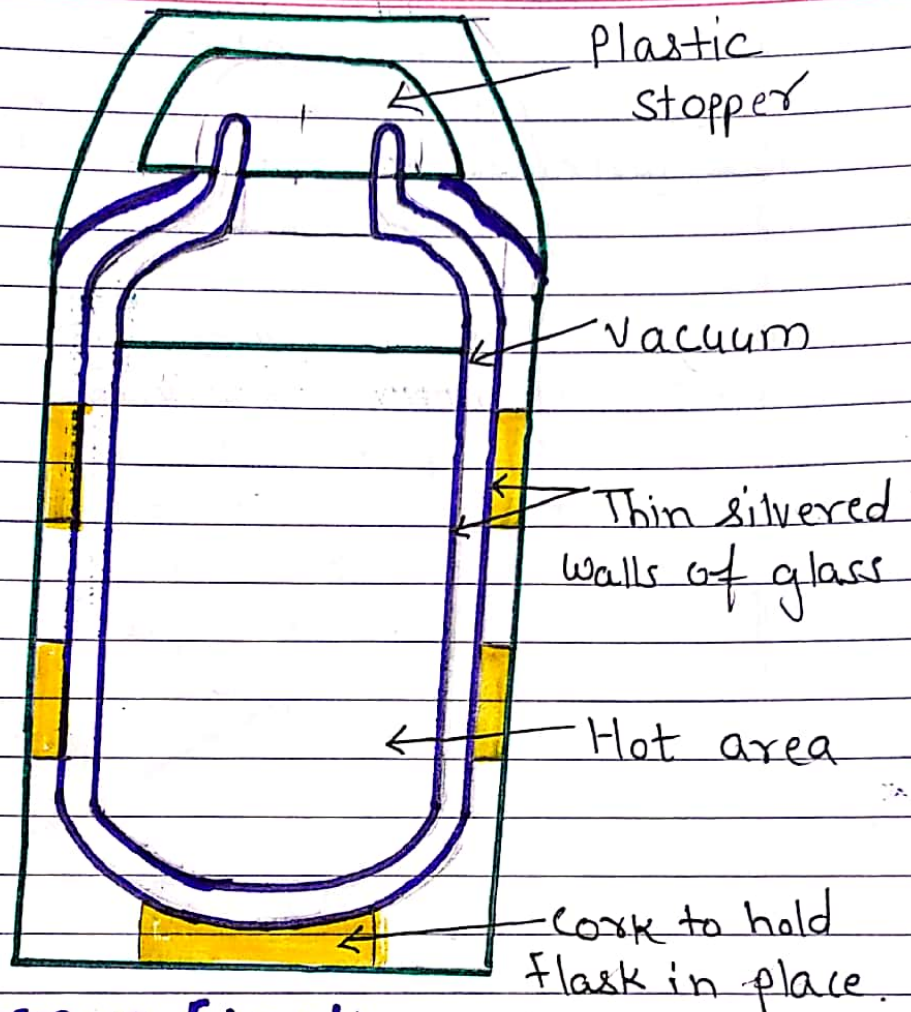 Plastic
Stopper
Vacuum
Thin silvered
walls of glass
Hot area
Cork to hold
flask in place.